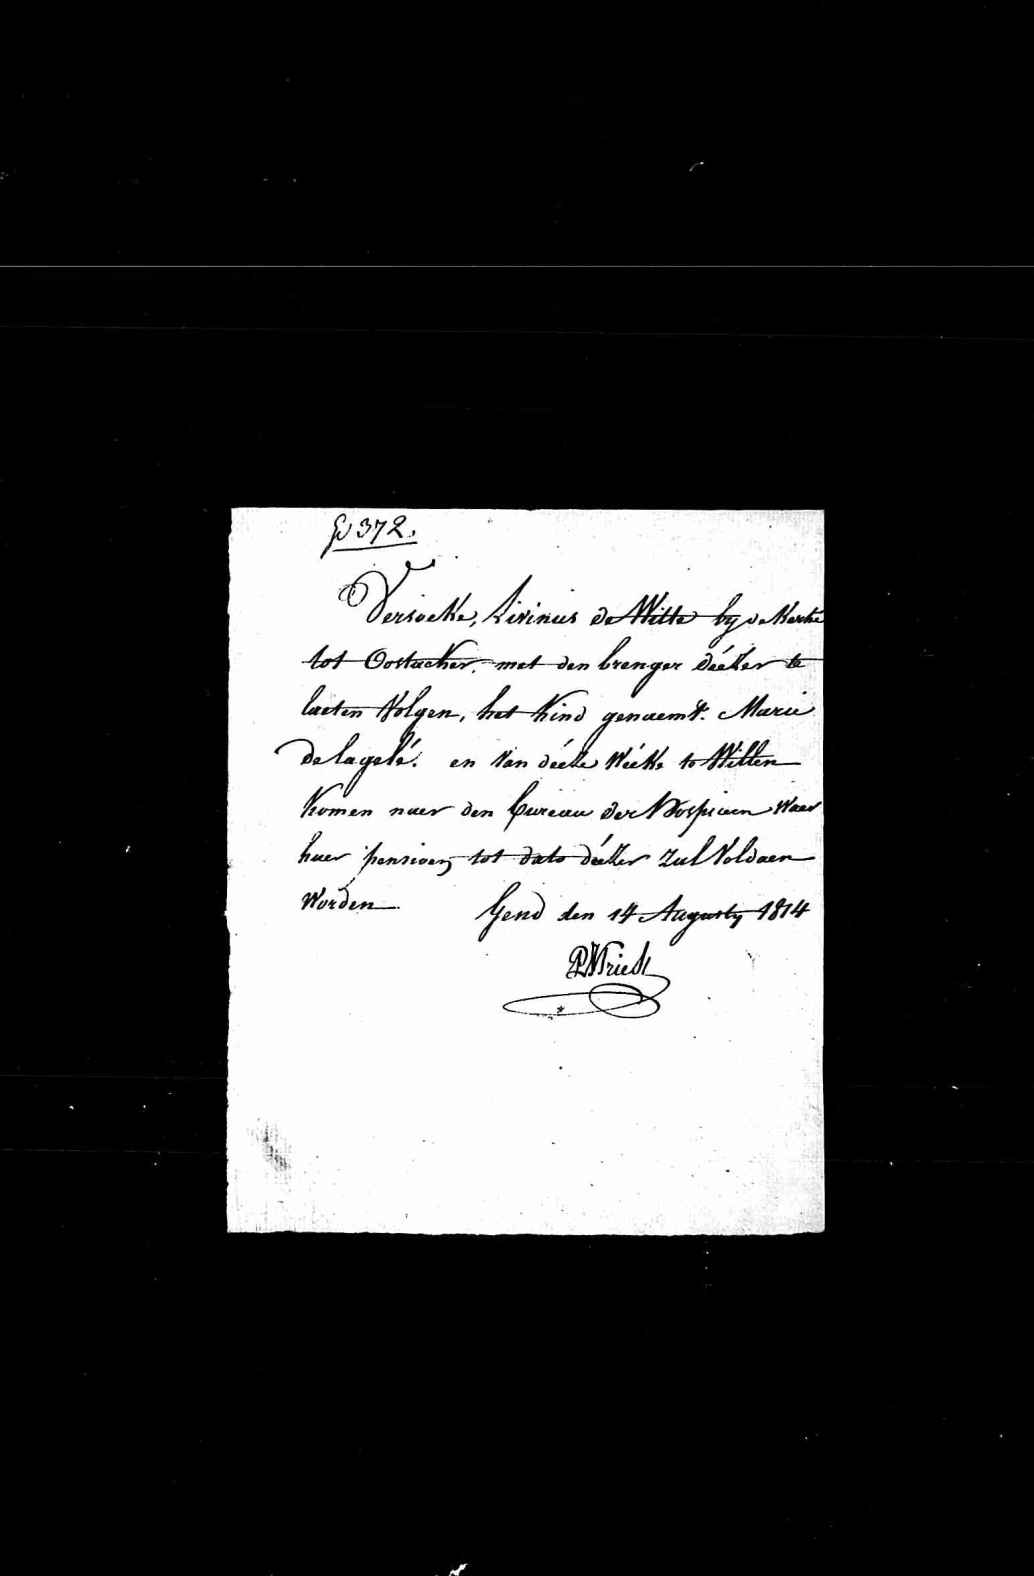 372.
Versoeke, Livinus de Witte by de Kerke
tot Oostacker, met den brenger deéser te
laeten Volgen, het Kind genaemt. Marie
delagelé. en Van deéze Wéeke te Willen
Komen naer den bureau der Hospicen Waer
haer pensioen tot dato deéser zul Voldaen
Worden Gend den 14 Augusty 1814